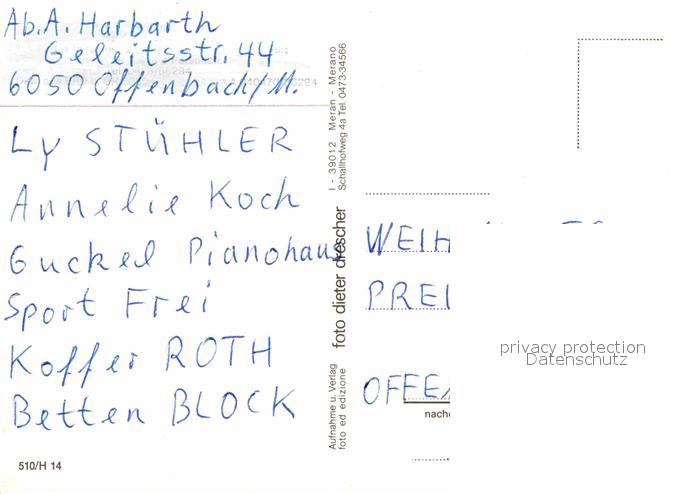 Ab. A. Harbarth
Geleitsstr. 44
6050 Offenbach/M.
Ly STÜHLER
Annelie Koch
Guckel Pianohaus
Sport Frei
Koffer ROTH
Betten BLOCK
510/H 14
I - 39012 Meran - Merano
Schallhofweg 4a Tel. 0473-34566
foto dieter drescher
Aufnahme u. Verlag
foto ed edizione
WEIH
PREI
OFFE
nach
privacy protection
Datenschutz